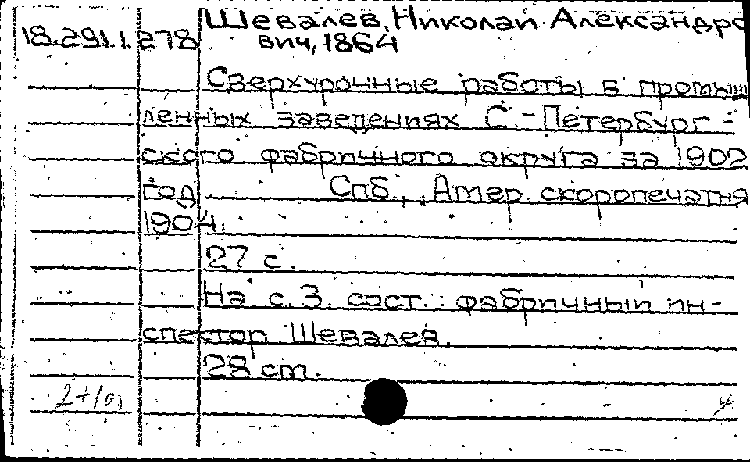 18.291.1.278 Шевалев, Николай Александро
вич, 1864
Сверхурочные работы в промыш
ленных заведениях С.-Петербург-
ского фабричного округа за 1902
год. Спб., Амер. скоропечатня
1904.
27 с.
На с. 3. сост.: фабричный ин-
спектор Шевалев.
28 cm.